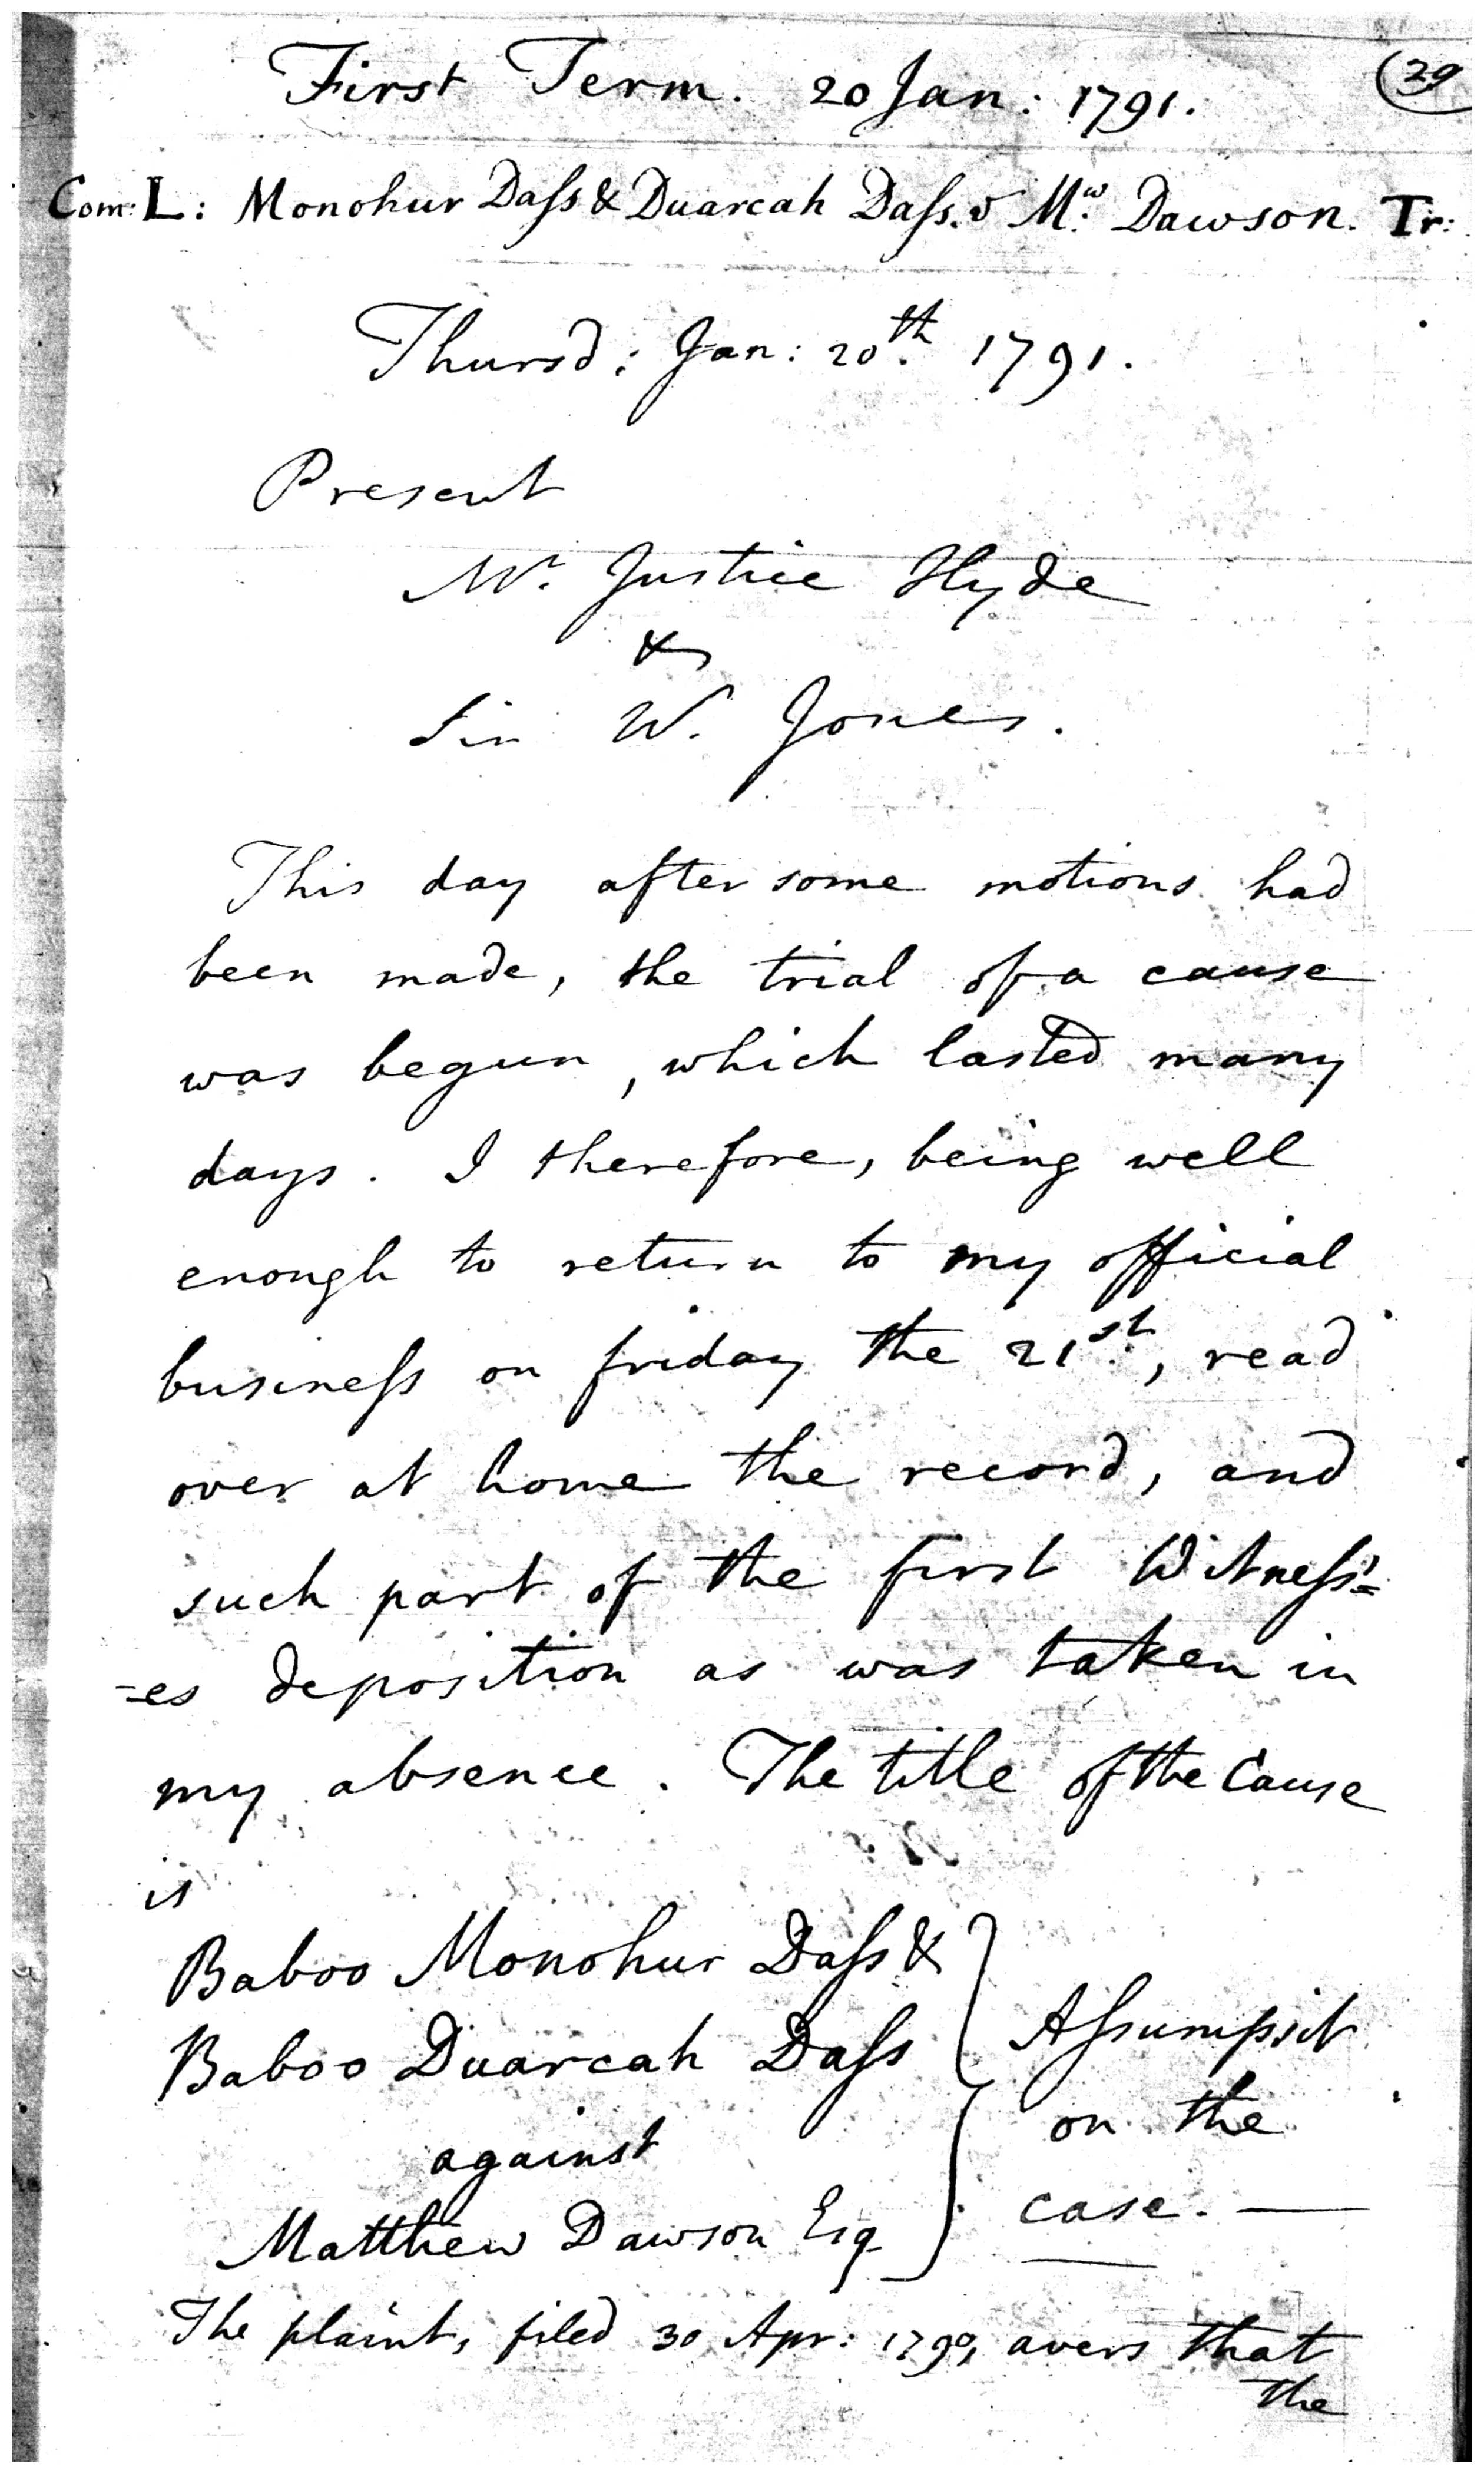 First Term. 20 Jan: 1791.
(29
Com: L: Monohur Daſs & Duarcah Daſs. v Mw. Dawson. Tr:
Thursd: Jan: 20th. 1791.
Present
Mr. Justice Hyde
&
Sir W. Jones.
This day after some motions had
been made, the trial of a cause
was begun, which lasted many
days. I therefore, being well
enough to return to my official
busineſs on friday the 21st., read
over at home the record, and
such part of the first Witneſs'=
=es deposition as was taken in
my absence. The title of the Cause
is
Baboo Monohur Daſs &
Baboo Duarcah Daſs
against
Matthew Dawson Esq
Aſsumpsit
on the
case. —
The plaint, filed 30 Apr: 1790, avers that
the